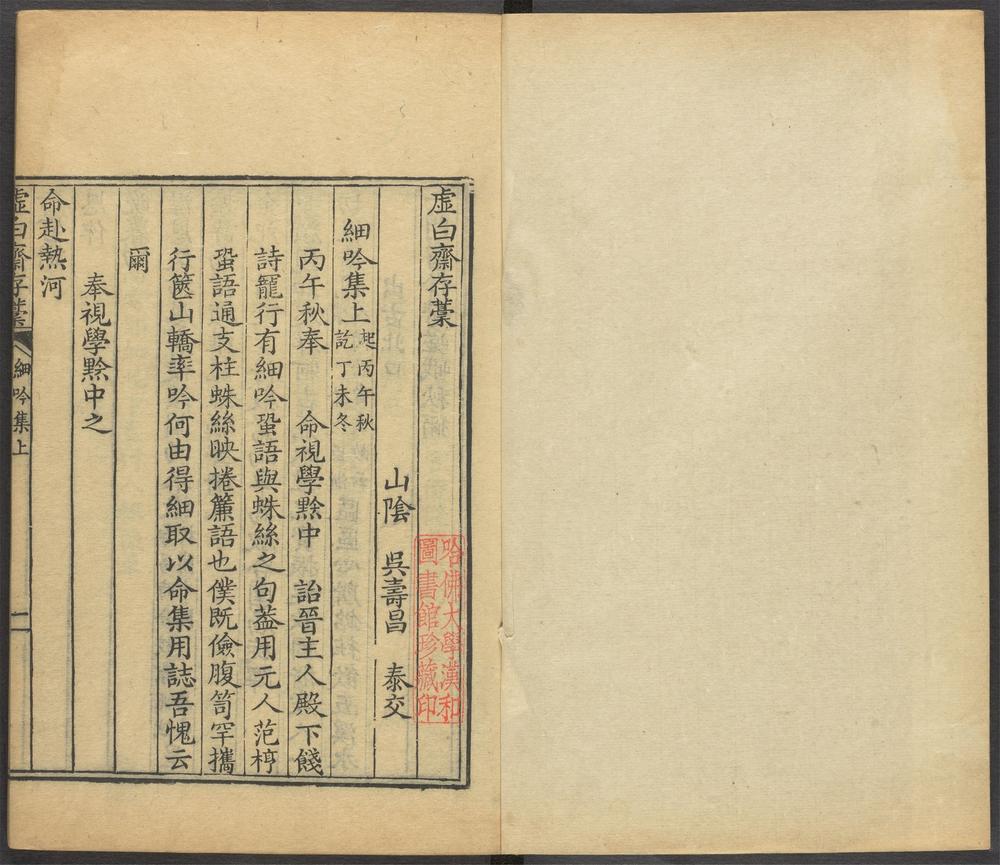 虛白齋存藁
山陰 吳壽昌 泰交
細吟集上 起丙午秋 訖丁未冬
丙午秋奉 命視學黔中 詒晉主人殿下餞
詩寵行有細吟蛩語與蛛絲之句蓋用元人范梈
蛩語通支柱蛛絲映捲簾語也僕既儉腹笥罕攜
行篋山轎率吟何由得細取以命集用誌吾愧云
爾
奉視學黔中之
命赴熱河
虛白齋存藁 細吟集上 一
哈佛大學漢和
圖書館珍藏印